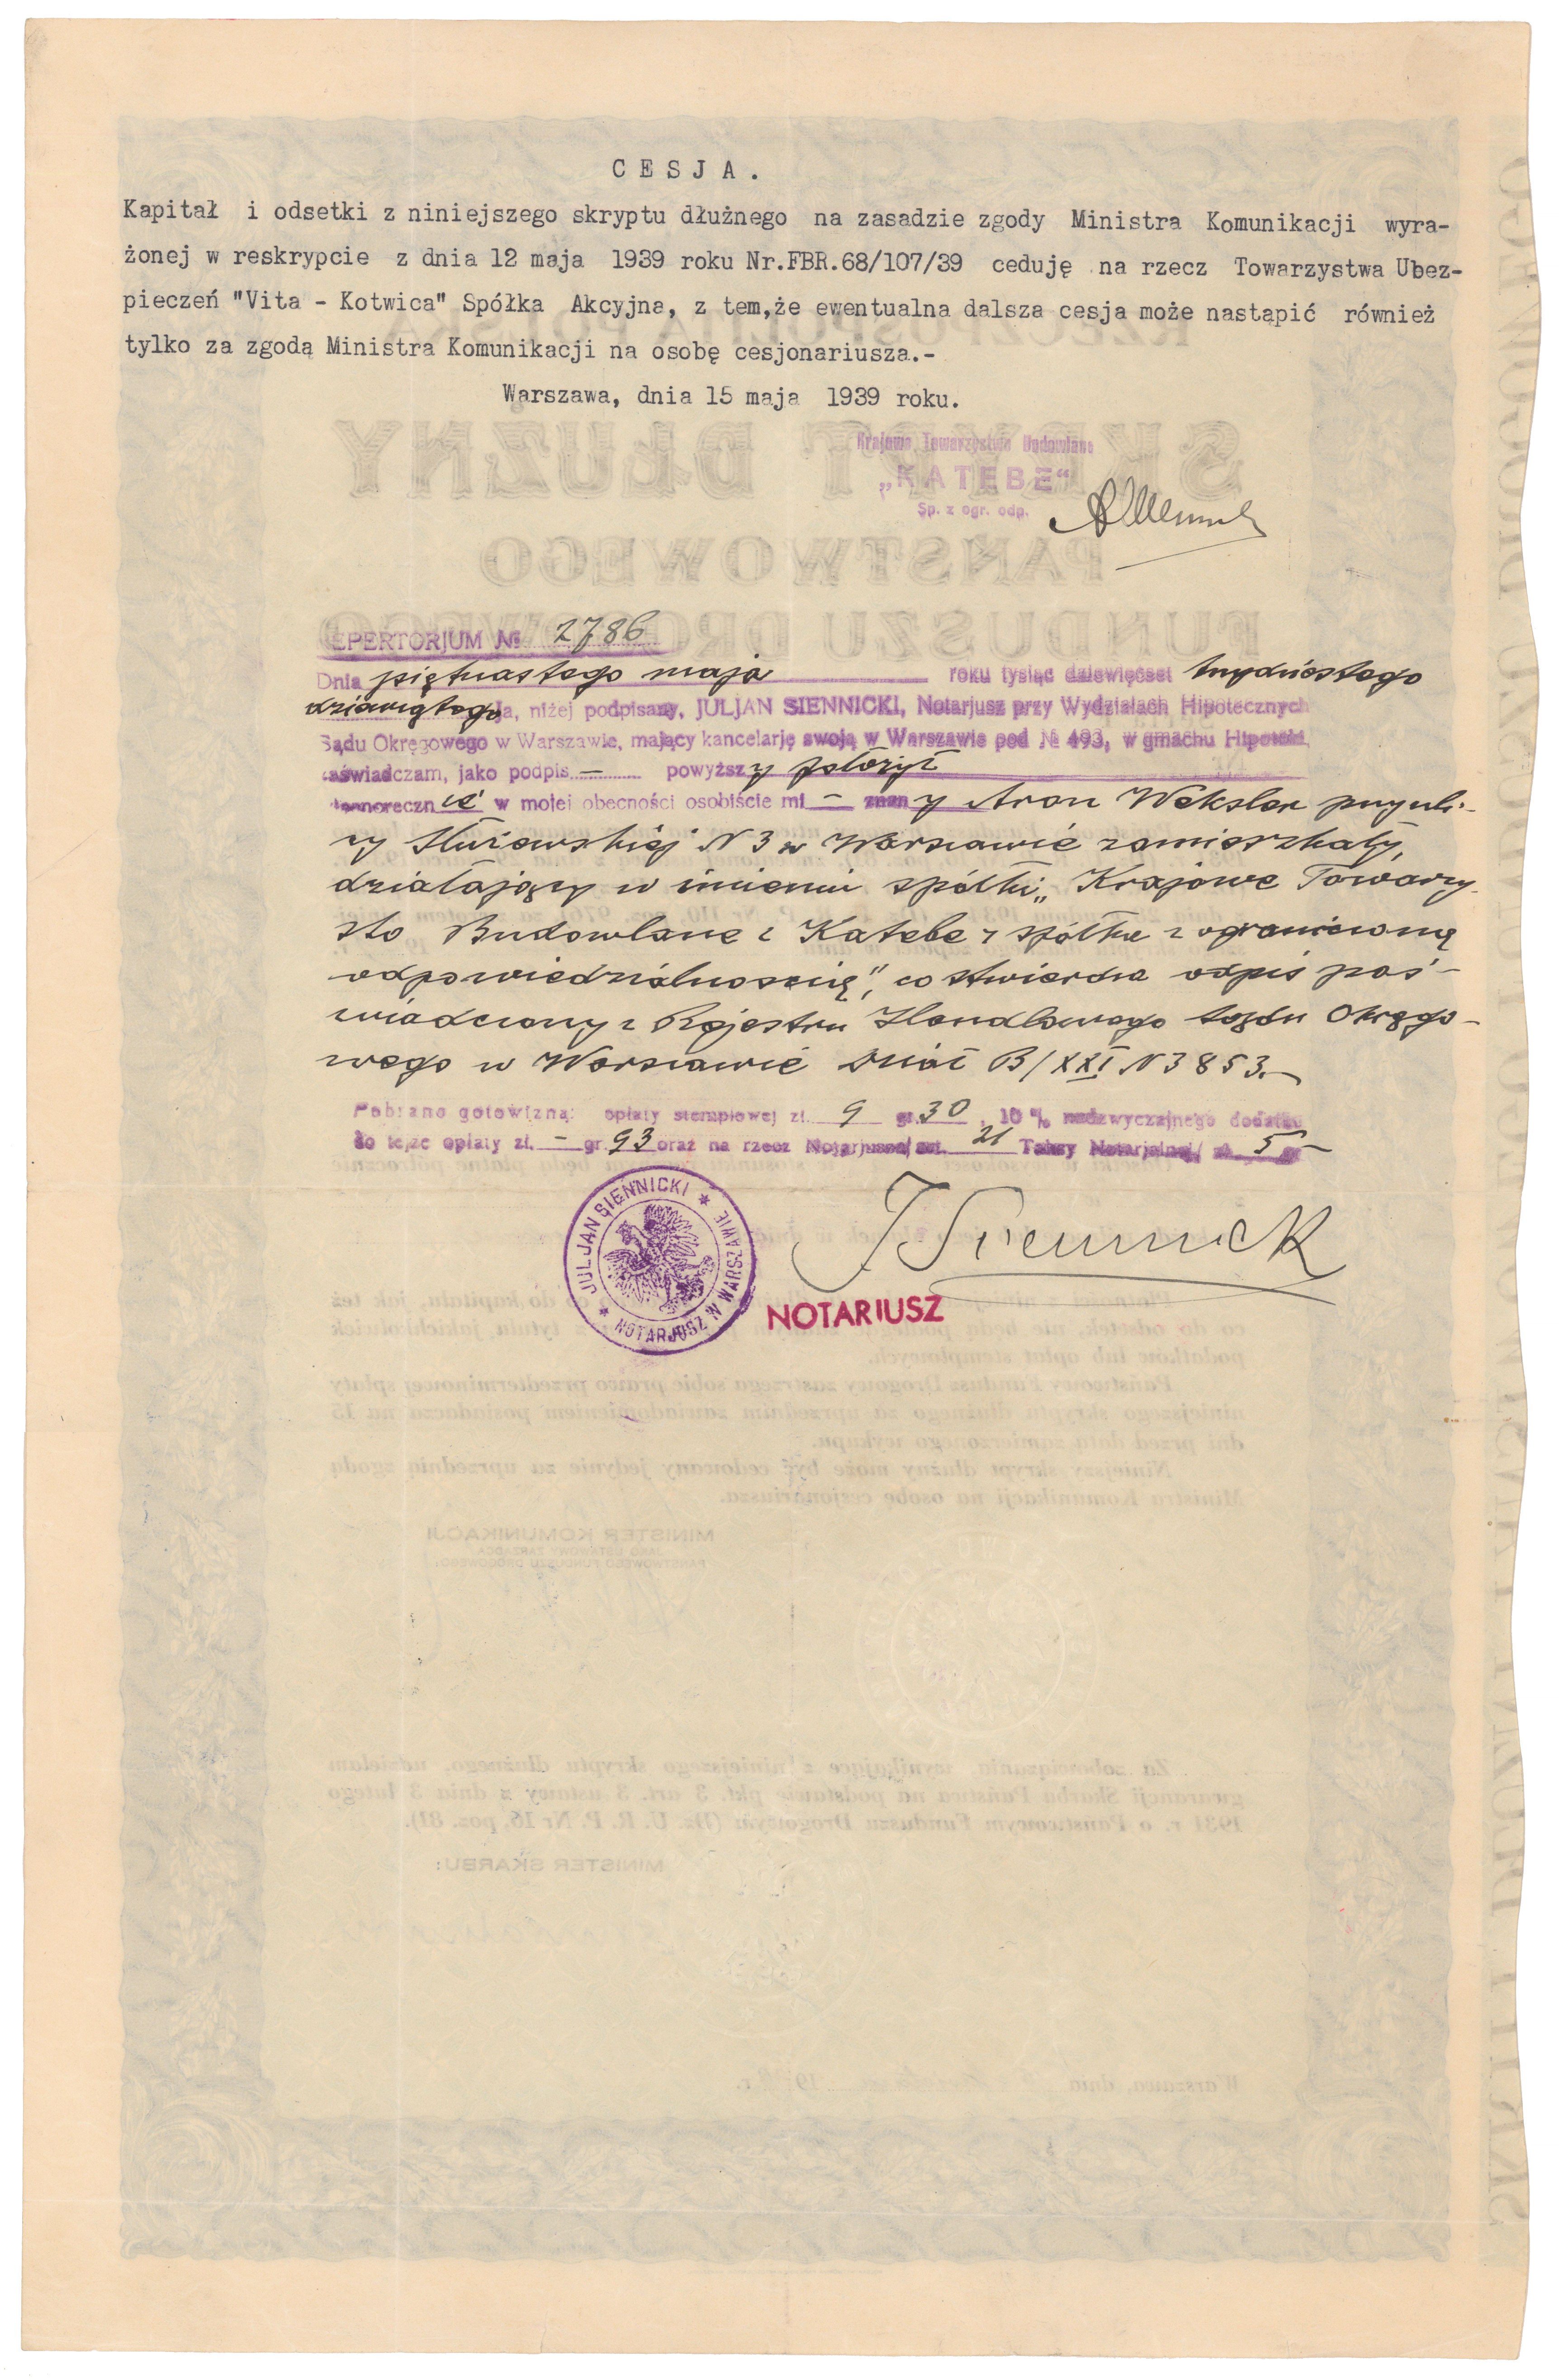 CESJA.
Kapitał i odsetki z niniejszego skryptu dłużnego na zasadzie zgody Ministra Komunikacji wyra-
żonej w reskrypcie z dnia 12 maja 1939 roku Nr.FBR.68/107/39 ceduję na rzecz Towarzystwa Ubez-
pieczeń "Vita - Kotwica" Spółka Akcyjna, z tem,że ewentualna dalsza cesja może nastąpić również
tylko za zgodą Ministra Komunikacji na osobę cesjonariusza.-
Warszawa, dnia 15 maja 1939 roku.
Krajowe Towarzystwo Budowlane
„KATEBE"
Sp. z ogr. odp.
EPERTORJUM № 2786
Dnia piętnastego maja roku tysiąc dziewięćset trzydziestego
dziewiątego Ja, niżej podpisany, JULJAN SIENNICKI, Notarjusz przy Wydziałach Hipotecznych
Sądu Okręgowego w Warszawie, mający kancelarję swoją w Warszawie pod № 493, w gmachu Hipoteki,
zaświadczam, jako podpis — powyższy złożył
własnoręcznie w mojej obecności osobiście mi — znany Aron Weksler przy uli-
cy Służewskiej N 3 w Warszawie zamieszkały,
działający w imieniu spółki „Krajowe Towarzy-
stwo Budowlane „Katebe" spółka z ograniczoną
odpowiedzialnością", co stwierdza odpis poś-
wiadczony z Rejestru Handlowego Sądu Okręgo-
wego w Warszawie Dział B/XXI N 3853.—
Pobrano gotowizną: opłaty stemplowej zł. 9 gr. 30, 10% nadzwyczajnego dodatku
do tejże opłaty zł. — gr. 93 oraz na rzecz Notarjusza/art. 21 Taksy Notarjalnej/ zł. 5 gr —
JULJAN SIENNICKI * NOTARJUSZ W WARSZAWIE *
J Siennicki
NOTARIUSZ